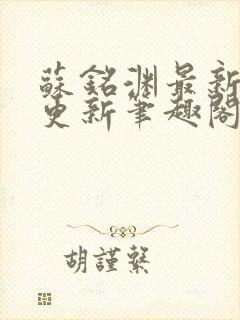 蘇銘淵最新
更新筆趣閣
胡謹繄